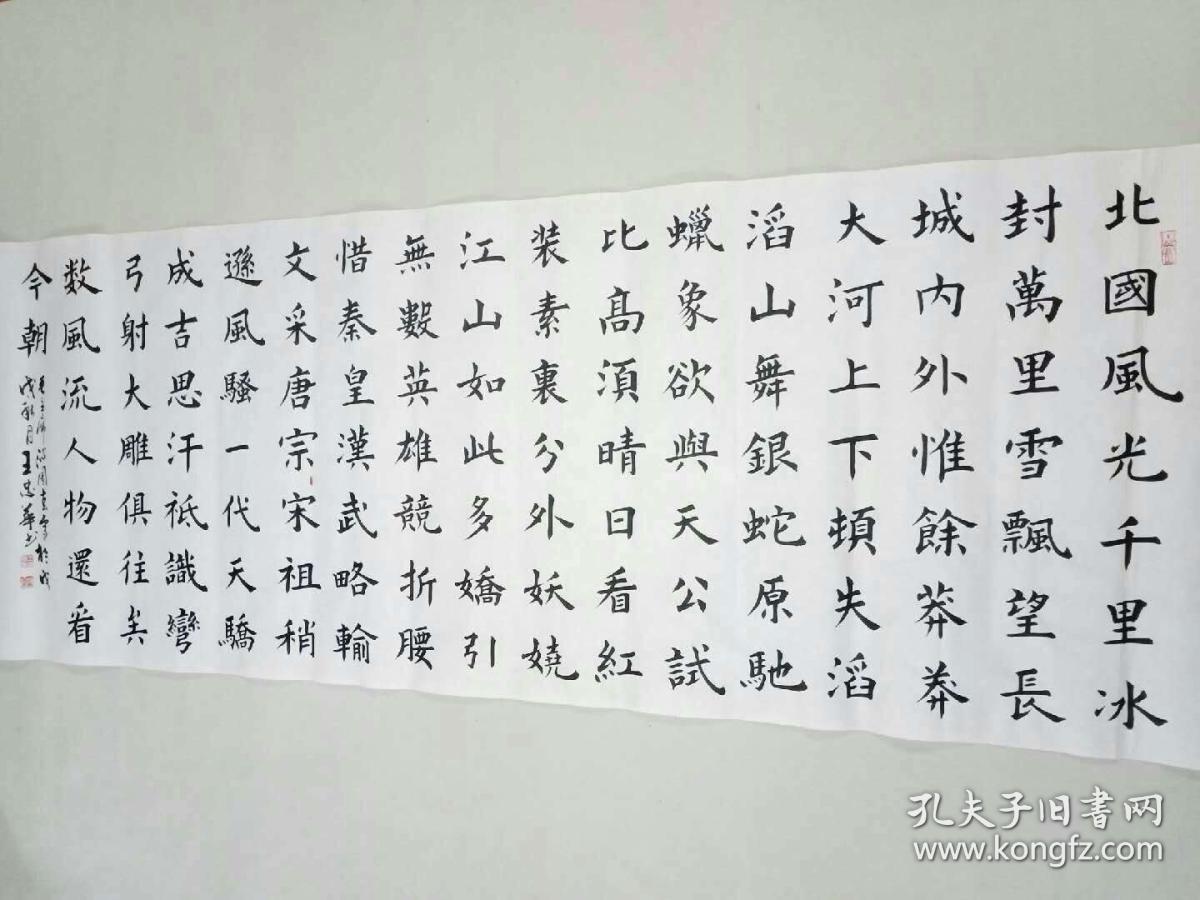 北國風光千里冰
封萬里雪飄望長
城内外惟餘莽莽
大河上下頓失滔
滔山舞銀蛇原馳
蠟象欲與天公試
比高須晴日看紅
装素裹分外妖嬈
江山如此多嬌引
無數英雄競折腰
惜秦皇漢武略輸
文采唐宗宋祖稍
遜風騷一代天驕
成吉思汗祇識彎
弓射大雕俱往矣
数風流人物還看
今朝
毛主席詞沁園春雪於戊
戌秋月王忠華书
孔夫子旧书网
www.kongfz.com